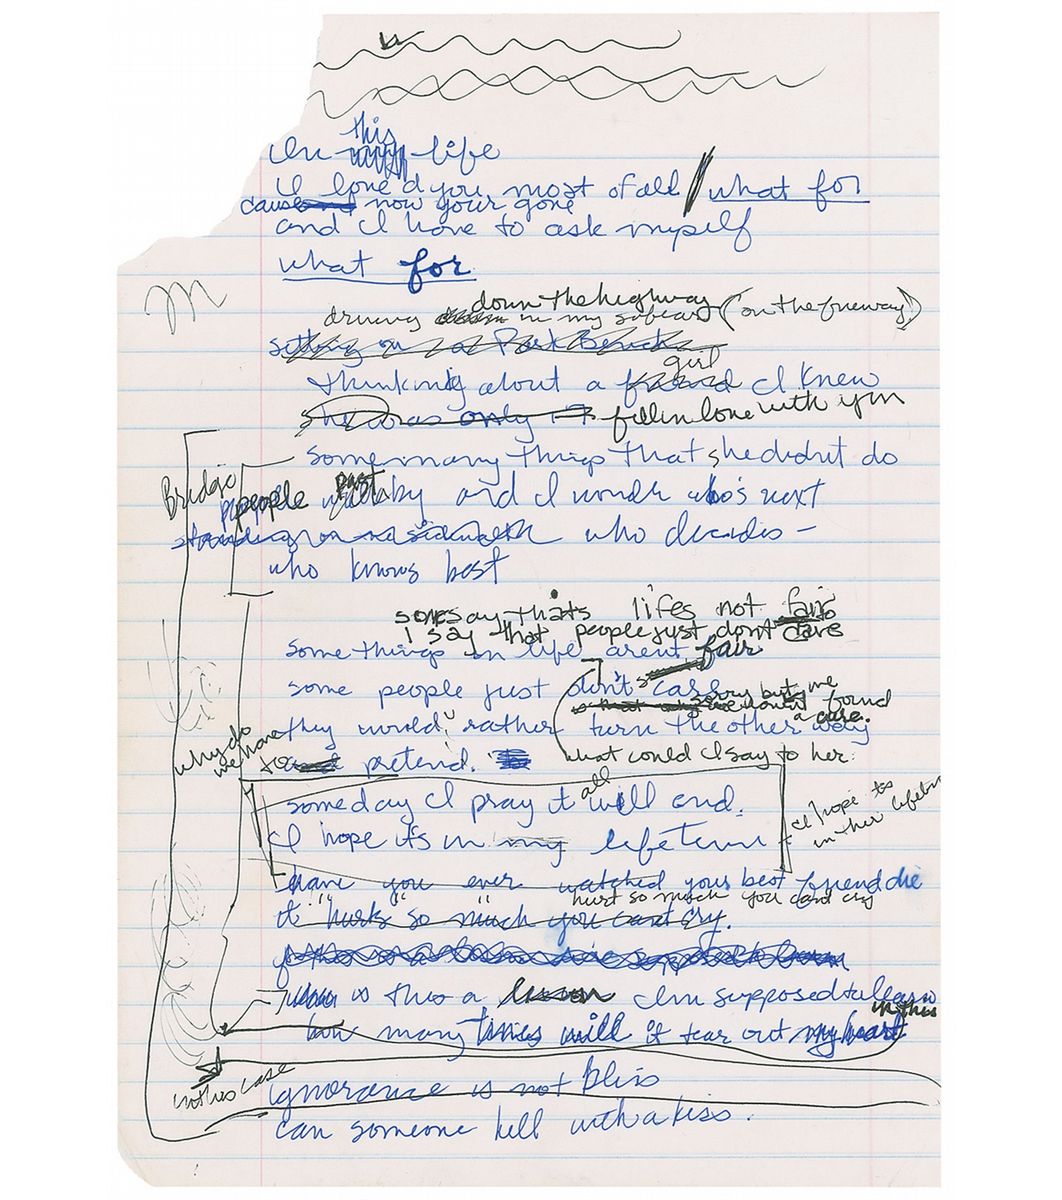 this
In life
I loved you most of all / what for
cause now your gone
and I have to ask myself
what for
down the highway
driving in my (on the freeway)
sitting on a Park Bench
girl
thinking about a friend I knew
she was only 17 fell in love with you
So many things that she didnt do
Bridge
past
people by and I wonder who's next
standing on a sidewalk who decides –
who knows best
some say thats lifes not fair
I say that people just dont care
some things in life arent fair
some people just don't care
sorry but we
found
a cure.
they would rather turn the other way
why do
we have
to pretend.
what could I say to her
all
someday I pray it will end.
I hope its in my lifetime
I hope its
in her lifetime
have you ever watched your best friend die
hurt so much you cant cry
it hurts so much you cant cry.
is this a lesson Im supposed to learn
in this
how many times will it tear out my heart
in this case
ignorance is not bliss
can someone kill with a kiss.